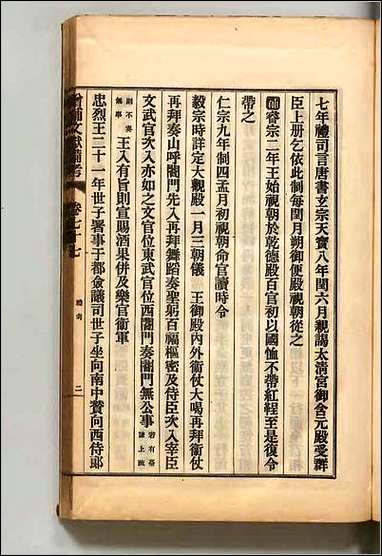 七年禮司言唐書玄宗天寶八年閏六月親謁太淸宮御含元殿受群
臣上册乞依此制每閏月朔御便殿視朝從之
補睿宗二年王始視朝於乾德殿百官初以國恤不帶紅鞓至是復令
帶之
仁宗九年制四孟月初視朝命官讀時令
毅宗時詳定大觀殿一月三朝儀 王御殿內外衛仗大喝再拜衛仗
再拜奏山呼閤門先入再拜舞蹈奏聖躬百福樞密及侍臣次入宰臣
文武官次入亦如之文官位東武官位西閤門奏閤門無公事若有恭謙上疏
則不奏無事 王入有旨則宣賜酒果併及樂官衛軍
忠烈王二十一年世子署事于都僉議司世子坐向南中贊向西侍郎
增補文獻備考 卷七十七 禮考 二